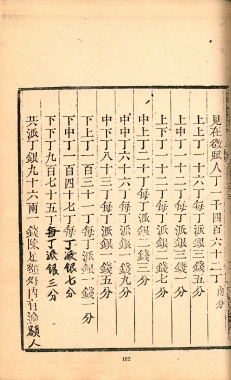 見在徵賦人丁一千四百六十二丁內分
上上丁一十六丁每丁派銀三錢五分
上中丁一十一丁每丁派銀三錢一分
上下丁一十二丁每丁派銀二錢七分
中上丁二十丁每丁派銀二錢三分
中中丁六十六丁每丁派銀一錢九分
中下丁八十三丁每丁派銀一錢五分
下上丁一百三十一丁每丁派銀一錢一分
下中丁一百四十七丁每丁派銀七分
下下丁九百七十五丁每丁派銀三分
共派丁銀九十六兩一錢除足額外內有溢額人
162